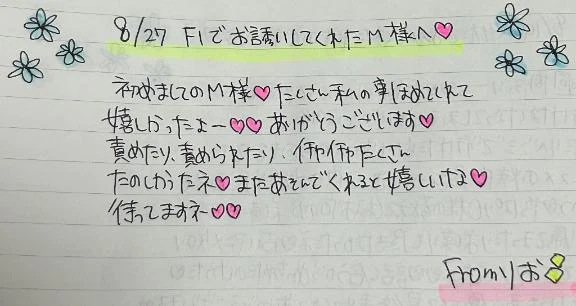 8/27 F1でお誘いしてくれたM様へ♡
初めましてのM様♡たくさん私の事ほめてくれて
嬉しかったよー♡♡ありがとうございます♡
責めたり、責められたり、イチャイチャたくさん
たのしかったネ♡またあそんでくれると嬉しいな♡
待ってますネー♡♡
Fromりお